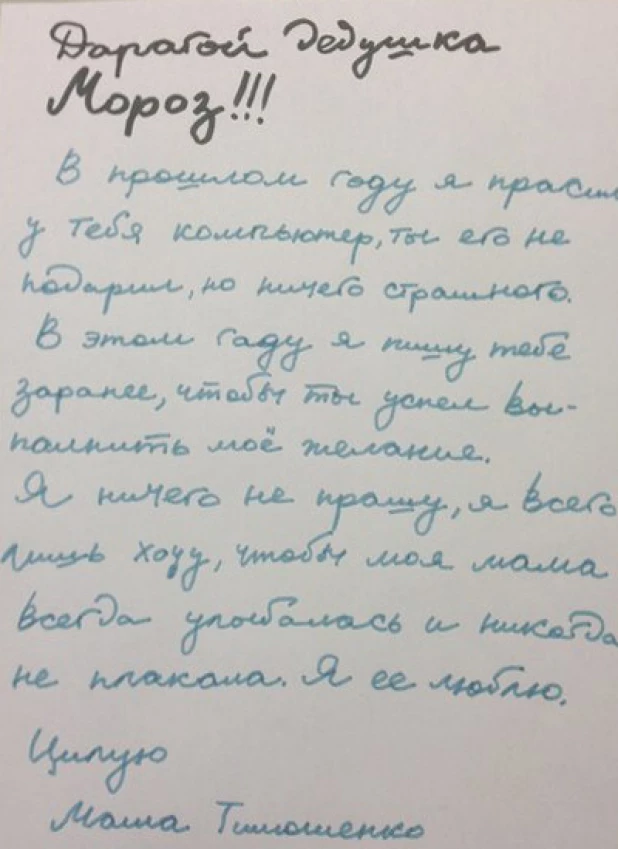 Дарагой Дедушка
Мороз!!!
В прошлом году я прасил
у тебя компьютер, ты его не
подарил, но ничего страшного.
В этом гаду я пишу тебе
заранее, чтобы ты успел вы-
палнить моё желание.
Я ничего не прашу, я всего
лишь хочу, чтобы моя мама
всегда улыбалась и никогда
не плакала. Я ее люблю.
Цилую
Маша Тимошенко